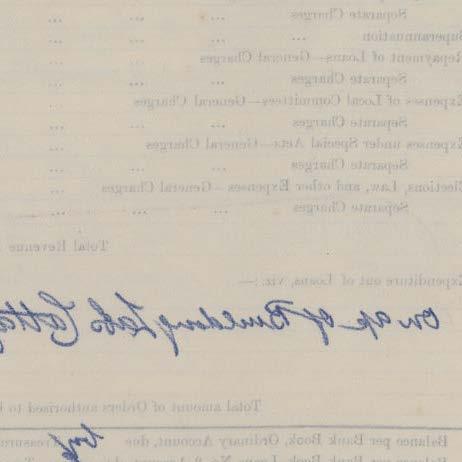 Separate Charges ... ... ...
Superannuation ... ... ...
Repayment of Loans—General Charges ...
Separate Charges ... ... ...
Expenses of Local Committees—General Charges
Separate Charges ... ... ...
Expenses under Special Acts—General Charges
Separate Charges ... ... ...
Elections, Law, and other Expenses—General Charges ...
Separate Charges ... ... ...
Total Revenue
Expenditure out of Loans, viz. :—
On a/c of Building Labr Cotta
Total amount of Orders authorised to b
Balance per Bank Book, Ordinary Account, due Treasur